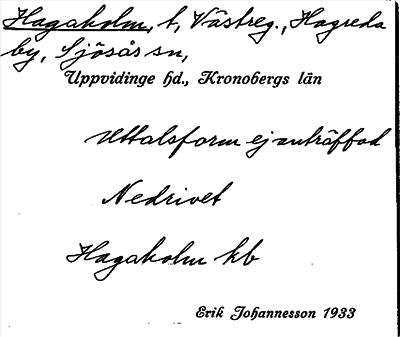 Hagaholm, t, Västreg., Hagreda
by, Sjösås sn,
Uppvidinge hd., Kronobergs län
Uttalsform ej anträffad
Nedrivet
Hagaholm kb
Erik Johannesson 1933